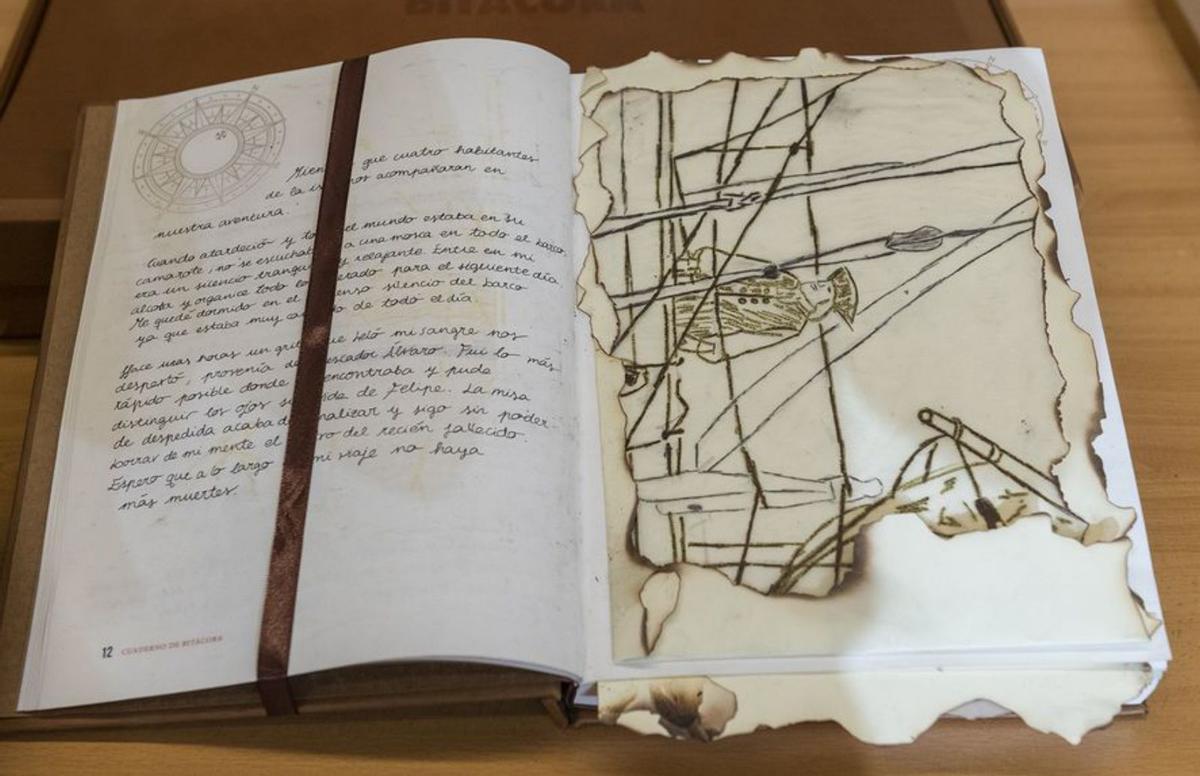 BITÁCORA
Mien que cuatro habitantes
de la is nos acompañaran en
nuestra aventura.
Cuando atardeció y to el mundo estaba en su
camarote, no se escuchaba a una mosca en todo el barco,
era un silencio tranqui y relajante. Entre en mi
alcoba y organice todo lo erado para el siguiente día.
Me quedé dormido en el enso silencio del barco
ya que estaba muy ca o de todo el día.
Hace unas horas un gri ue heló mi sangre nos
despertó, provenía de escador Álvaro. Fui lo más
rápido posible donde encontraba y pude
distinguir los ojos si ida de Felipe. La misa
de despedida acaba d nalizar y sigo sin poder
borrar de mi mente el ro del recién fallecido.
Espero que a lo largo mi viaje no haya
más muertes.
12 CUADERNO DE BITÁCORA